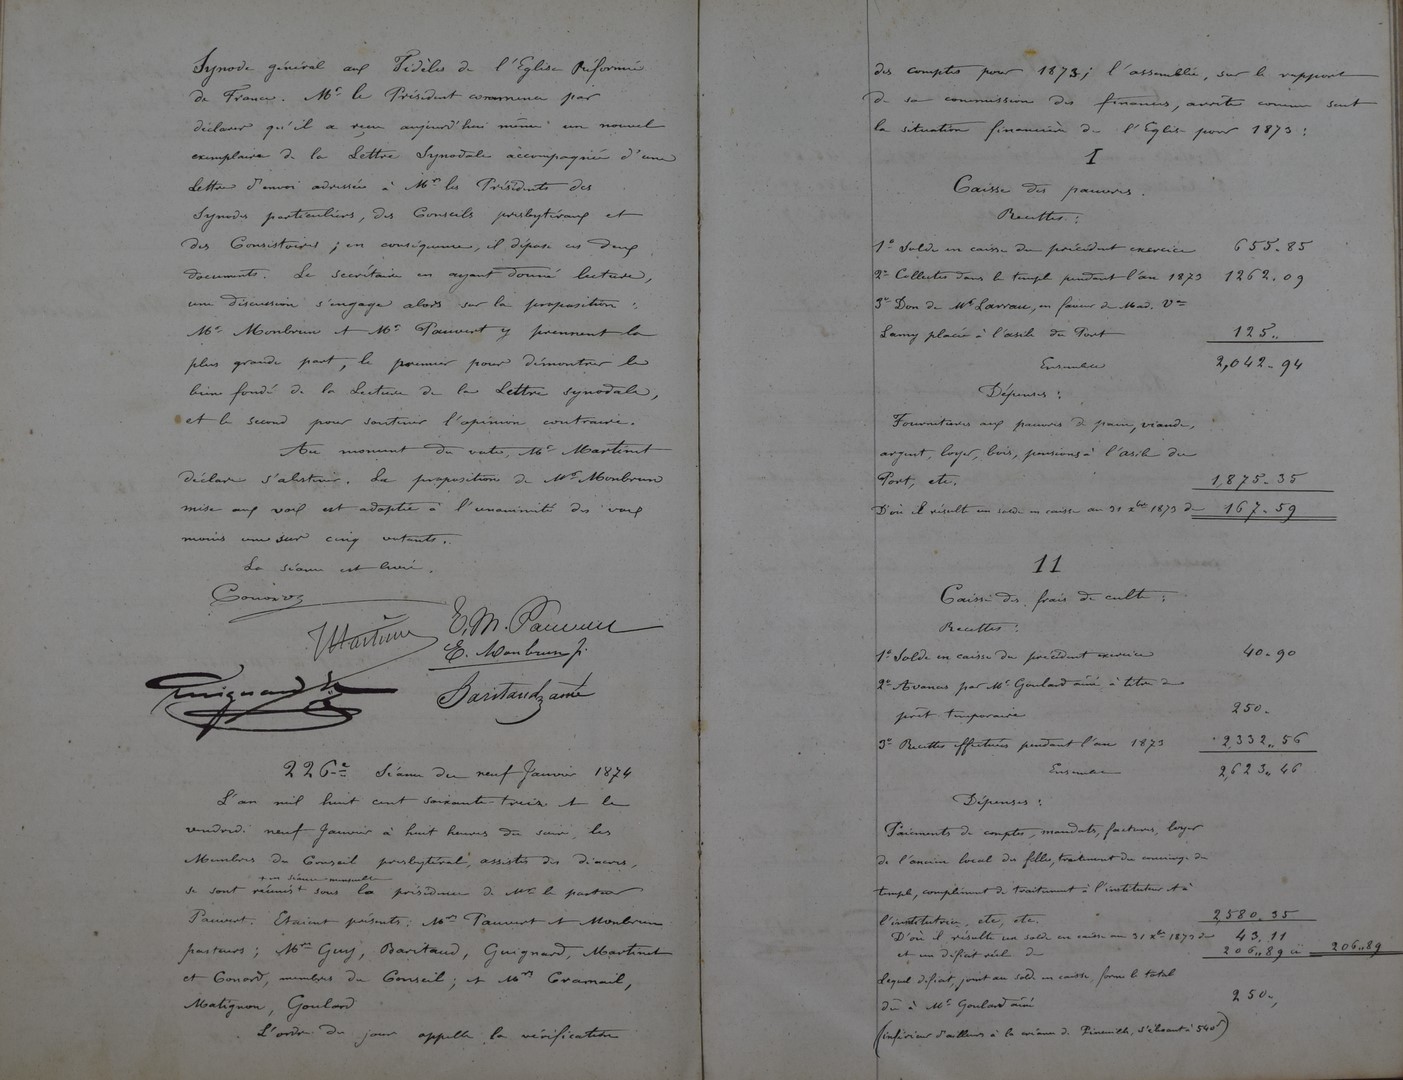 Synode général aux Fidèles de l'Eglise Réformée
de France. Mr le Président commence par
déclarer qu'il a reçu aujourd'hui même un nouvel
exemplaire de la Lettre Synodale accompagnée d'une
Lettre d'envoi adressée à Mrs les Présidents des
Synodes particuliers, des Conseils presbytéraux et
des Consistoires ; en conséquence, il dépose ces deux
documents. Le secrétaire en ayant donné lecture,
une discussion s'engage alors sur la proposition :
Mr Monbrun et Mr Pauvert y prennent la
plus grande part, le premier pour démontrer le
bien fondé de la Lecture de la Lettre synodale,
et le second pour soutenir l'opinion contraire.
Au moment du vote, Mr Martinet
déclare s'abstenir. La proposition de Mr Monbrun
mise aux voix est adoptée à l'unanimité des voix
moins une sur cinq votants.
La séance est levée.
E. M. Pauvert
E. Monbrun p.
Guignard
Baritaud aîné
226e Séance du neuf Janvier 1874
L'an mil huit cent soixante treize et le
vendredi neuf Janvier à huit heures du soir, les
Membres du Conseil presbytéral, assistés des diacres,
+ en séance mensuelle
se sont réunis + sous la présidence de Mr le pasteur
Pauvert. Etaient présents : Mrs Pauvert et Monbrun
pasteurs ; Mrs Guy, Baritaud, Guignard, Martinet
et Conord, membres du Conseil ; et Mrs Gramail,
Matignon, Goulard
L'ordre du jour appelle la vérification
des comptes pour 1873 ; l'assemblée, sur le rapport
de sa commission des finances, arrête comme suit
la situation financière de l'Eglise pour 1873 :
I
Caisse des pauvres.
Recettes :
1° Solde en caisse du précédent exercice 655.85
2° Collectes dans le temple pendant l'an 1873 1262.09
3° Don de Mr Larrau, en faveur de Mad. Ve
Lamy placée à l'asile du Port 125 "
Ensemble 2,042.94
Dépenses :
Fournitures aux pauvres de pain, viande,
argent, loyer, bois, pensions à l'asile du
Port, etc. 1,875.35
D'où il résulte un solde en caisse au 31 Xbre 1873 de 167.59
11
Caisse des frais de culte :
Recettes :
1° Solde en caisse du précédent exercice 40.90
2° Avances par Mr Goulard aîné à titre de
prêt temporaire 250.
3° Recettes effectuées pendant l'an 1873 2332,,56
Ensemble 2,623,,46
Dépenses :
Paiements de comptes, mandats, factures, loyer
de l'ancien local des filles, traitement du concierge du
temple, complément de traitement à l'instituteur et à
l'institutrice, etc, etc. 2580.35
D'où il résulte un solde en caisse au 31 Xbre 1873 de 43.11
et un déficit réel de 206,,89 ci 206,,89
Lequel déficit, joint au solde en caisse, forme le total
dû à Mr Goulard aîné 250.,
(inférieur d'ailleurs à la créance de Pineuilh, s'élevant à 540f)